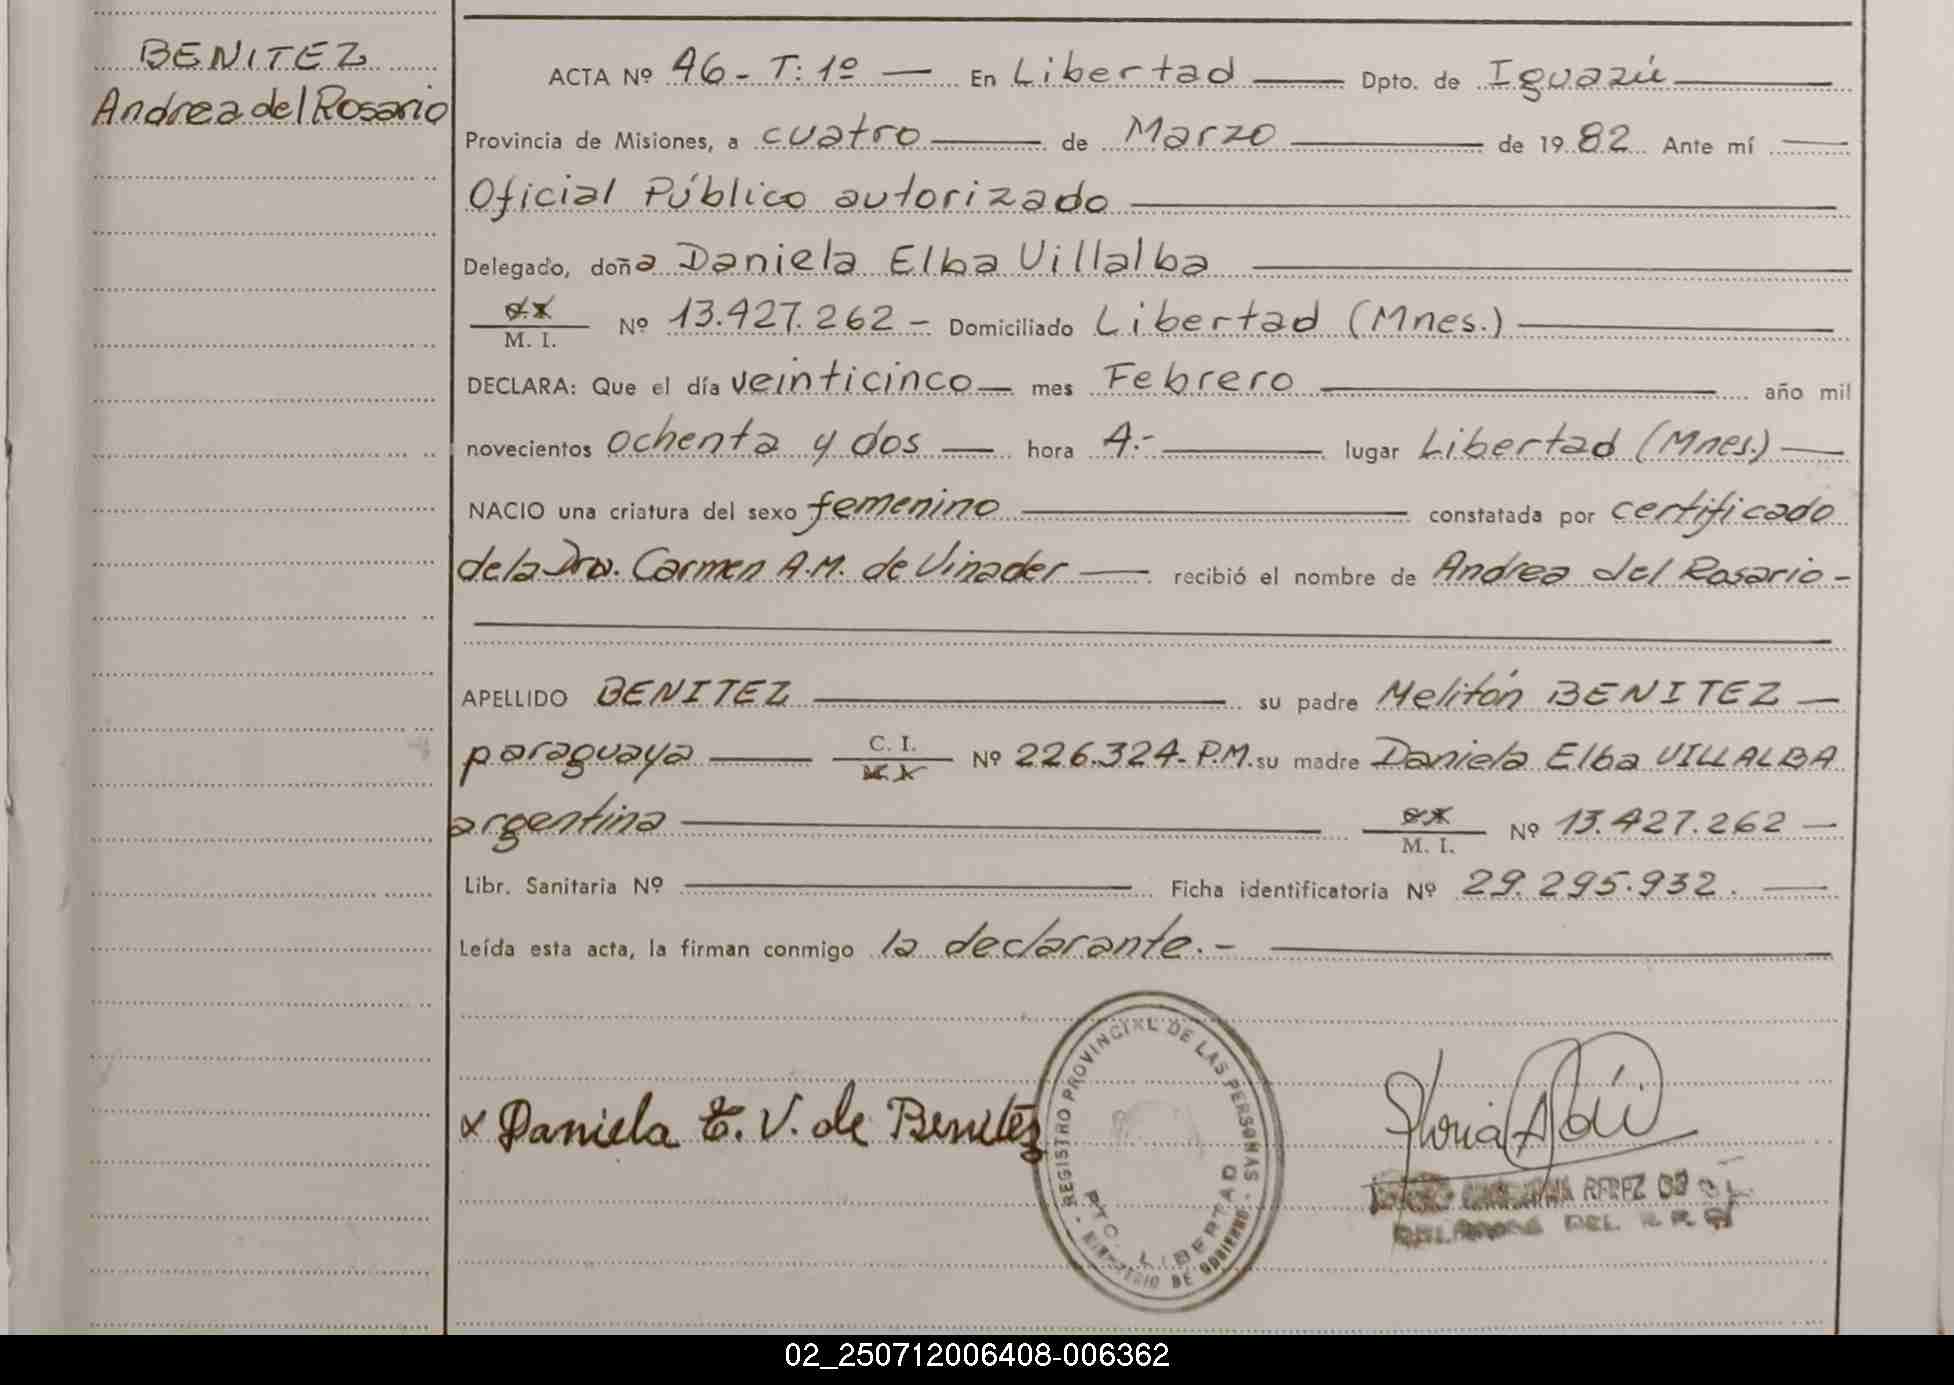 BENITEZ
Andrea del Rosario
ACTA Nº 46 - T: 1º — En Libertad — Dpto. de Iguazú —
Provincia de Misiones, a cuatro — de Marzo — de 1982 Ante mí —
Oficial Público autorizado —
Delegado, doña Daniela Elba Villalba —
M. I. Nº 13.427.262 - Domiciliado Libertad (Mnes.) —
DECLARA: Que el día veinticinco — mes Febrero — año mil
novecientos ochenta y dos — hora 4.- — lugar Libertad (Mnes.) —
NACIO una criatura del sexo femenino — constatada por certificado
de la Dra. Carmen A.M. de Vinader — recibió el nombre de Andrea del Rosario -
APELLIDO BENITEZ — su padre Melitón BENITEZ —
paraguaya — C. I. Nº 226.324- P.M. su madre Daniela Elba VILLALBA
argentina — M. I. Nº 13.427.262 —
Libr. Sanitaria Nº — Ficha identificatoria Nº 29.295.932. —
Leída esta acta, la firman conmigo la declarante.- —
x Daniela E. V. de Benitez
REGISTRO PROVINCIAL DE LAS PERSONAS - MINISTERIO DE GOBIERNO -
PTO. LIBERTAD
PEREZ DE
DEL
02_250712006408-006362